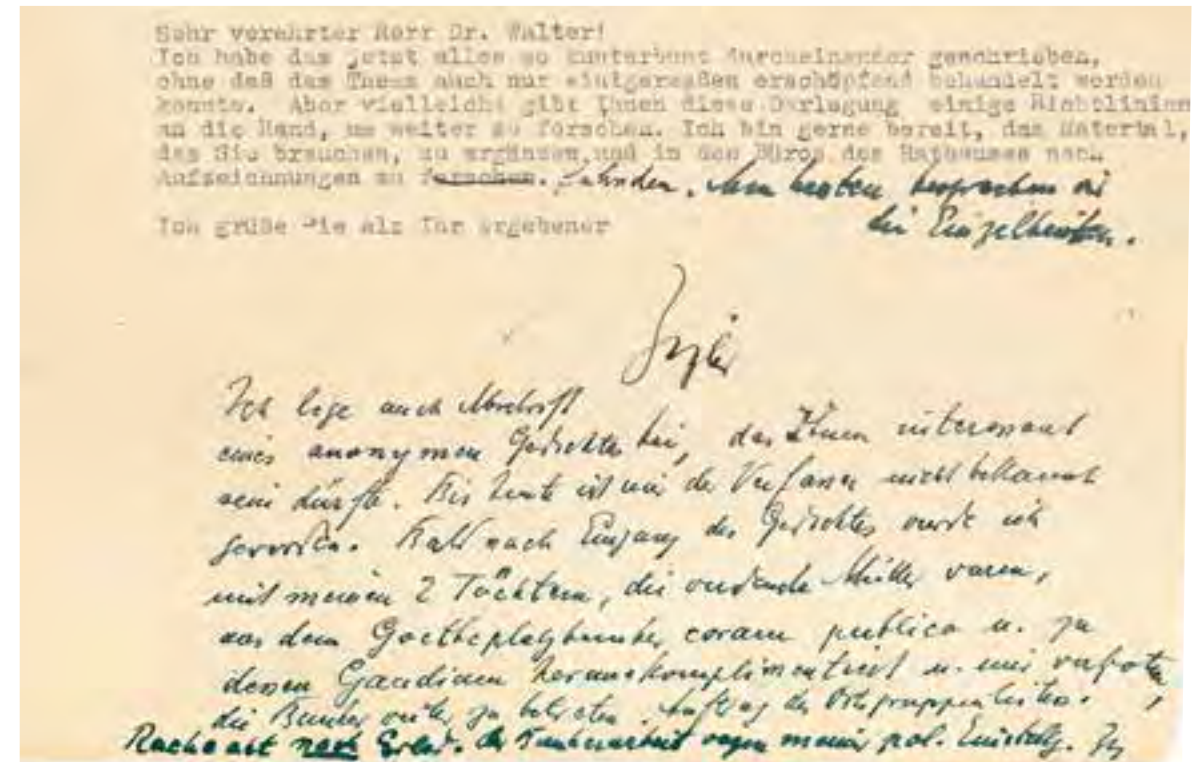 Sehr verehrter Herr Dr. Walter!
Ich habe das jetzt alles so kunterbunt durcheinander geschrieben,
ohne daß das Thema auch nur einigermaßen erschöpfend behandelt werden
konnte. Aber vielleicht gibt Ihnen diese Darlegung einige Richtlinien
an die Hand, um weiter zu forschen. Ich bin gerne bereit, das Material,
das Sie brauchen, zu ergänzen, und in den Büros des Rathauses nach
Aufzeichnungen zu forschen. fahnden. Am besten besprechen wir
die Einzelheiten.
Ich grüße Sie als Ihr ergebener
Ich lege auch Abschrift
eines anonymen Gedichtes bei, das Ihnen interessant
sein dürfte. Bis heute ist mir der Verfasser nicht bekannt
geworden. Bald nach Eingang des Gedichtes wurde ich
mit meinen 2 Töchtern, die werdende Mütter waren,
aus dem Goetheplatzbunker coram publico u. zu
dessen Gaudium herauskomplimentiert u. mir verboten,
die Bunker weiter zu betreten. Auftrag des Ortsgruppenleiters.
Racheakt nach der wegen meiner pol. Einstellg.